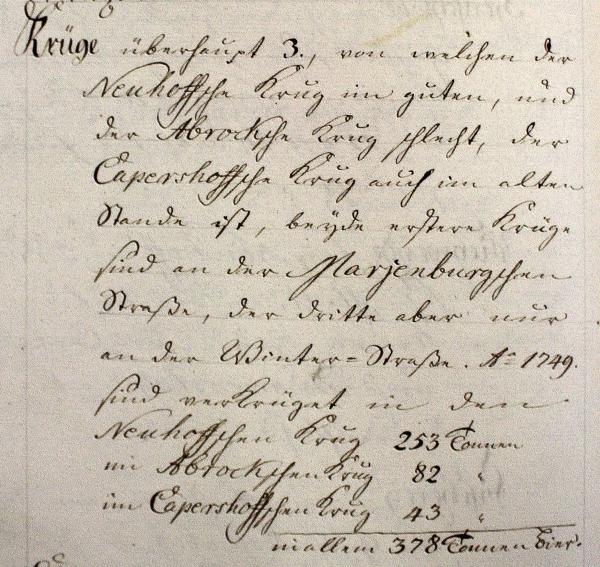 Krüge überhaupt 3., von welchen der
Neuhoffsche Krug im guten, und
der Abrocksche Krug schlecht, der
Capershoffsche Krug auch im alten
Stande ist, beyde erstere Krüge
sind an der Marjenburgschen
Straße, der dritte aber nur
an der Winter=Straße. Ao 1749.
sind verkrüget in den
Neuhoffschen Krug 253 Tonnen
im Abrockschen Krug 82 "
im Capershoffschen Krug 43 "
in allem 378 Tonnen Bier.